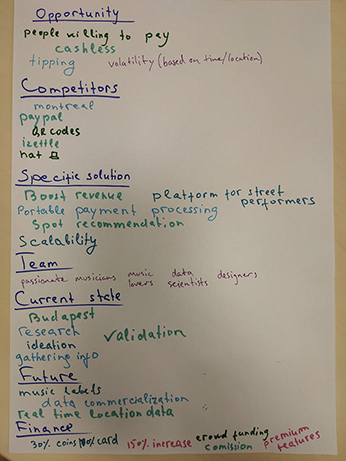 Opportunity
people willing to pay
cashless
tipping volatility (based on time/location)
Competitors
montreal
paypal
QR codes
izettle
hat
Specific solution
Boost revenue platform for street performers
Portable payment processing
Spot recommendation
Scalability
Team
passionate musicians music lovers data scientists designers
Current state
Budapest
research validation
ideation
gathering info
Future
music labels
data commercialization
real time location data
Finance
30% coins 100% card 15% increase crowd funding comission premium features